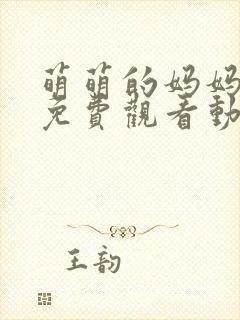 萌萌的妈妈
免費觀看動
王韵